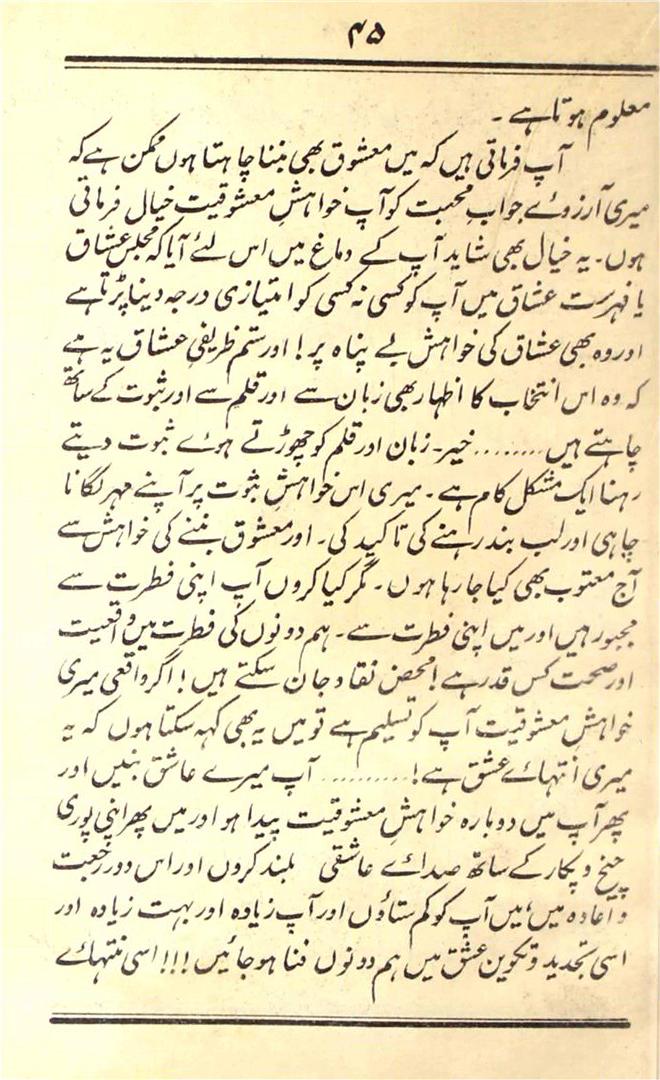 ۴۵
معلوم ہوتا ہے ۔
آپ فرماتی ہیں کہ میں معشوق بھی بننا چاہتا ہوں ممکن ہے کہ
میری آرزوئے جوابِ محبت کو آپ خواہشِ معشوقیت خیال فرماتی
ہوں ۔ یہ خیال بھی شاید آپ کے دماغ میں اس لئے آیا کہ مجلسِ عشاق
یا فہرست عشاق میں آپ کو کسی نہ کسی کو امتیازی درجہ دینا پڑتا ہے
اور وہ بھی عشاق کی خواہش بے پناہ پر ! اور ستم ظریفیِ عشاق یہ ہے
کہ وہ اس انتخاب کا اظہار بھی زبان سے اور قلم سے اور ثبوت کے ساتھ
چاہتے ہیں ........ خیر ۔ زبان اور قلم کو چھوڑتے ہوئے ثبوت دیتے
رہنا ایک مشکل کام ہے ۔ میری اس خواہشِ ثبوت پر آپنے مہر لگانا
چاہی اور لب بند رہنے کی تاکید کی ۔ اور معشوق بننے کی خواہش سے
آج معتوب بھی کیا جا رہا ہوں ۔ مگر کیا کروں آپ اپنی فطرت سے
مجبور ہیں اور میں اپنی فطرت سے ۔ ہم دونوں کی فطرت میں واقعیت
اور صحت کس قدر ہے ! محض نقاد جان سکتے ہیں ! اگر واقعی میری
خواہشِ معشوقیت آپ کو تسلیم ہے تو میں یہ بھی کہہ سکتا ہوں کہ یہ
میری انتہائے عشق ہے ! .......... آپ میرے عاشق بنیں اور
پھر آپ میں دوبارہ خواہشِ معشوقیت پیدا ہو اور میں پھر اپنی پوری
چیخ و پکار کے ساتھ صدائے عاشقی بلند کروں اور اس دور رجعت
و اعادہ میں ، میں آپ کو کم ستاؤں اور آپ زیادہ اور بہت زیادہ اور
اسی تجدید و تکوین عشق میں ہم دونوں فنا ہو جائیں !!! اسی منتہائے